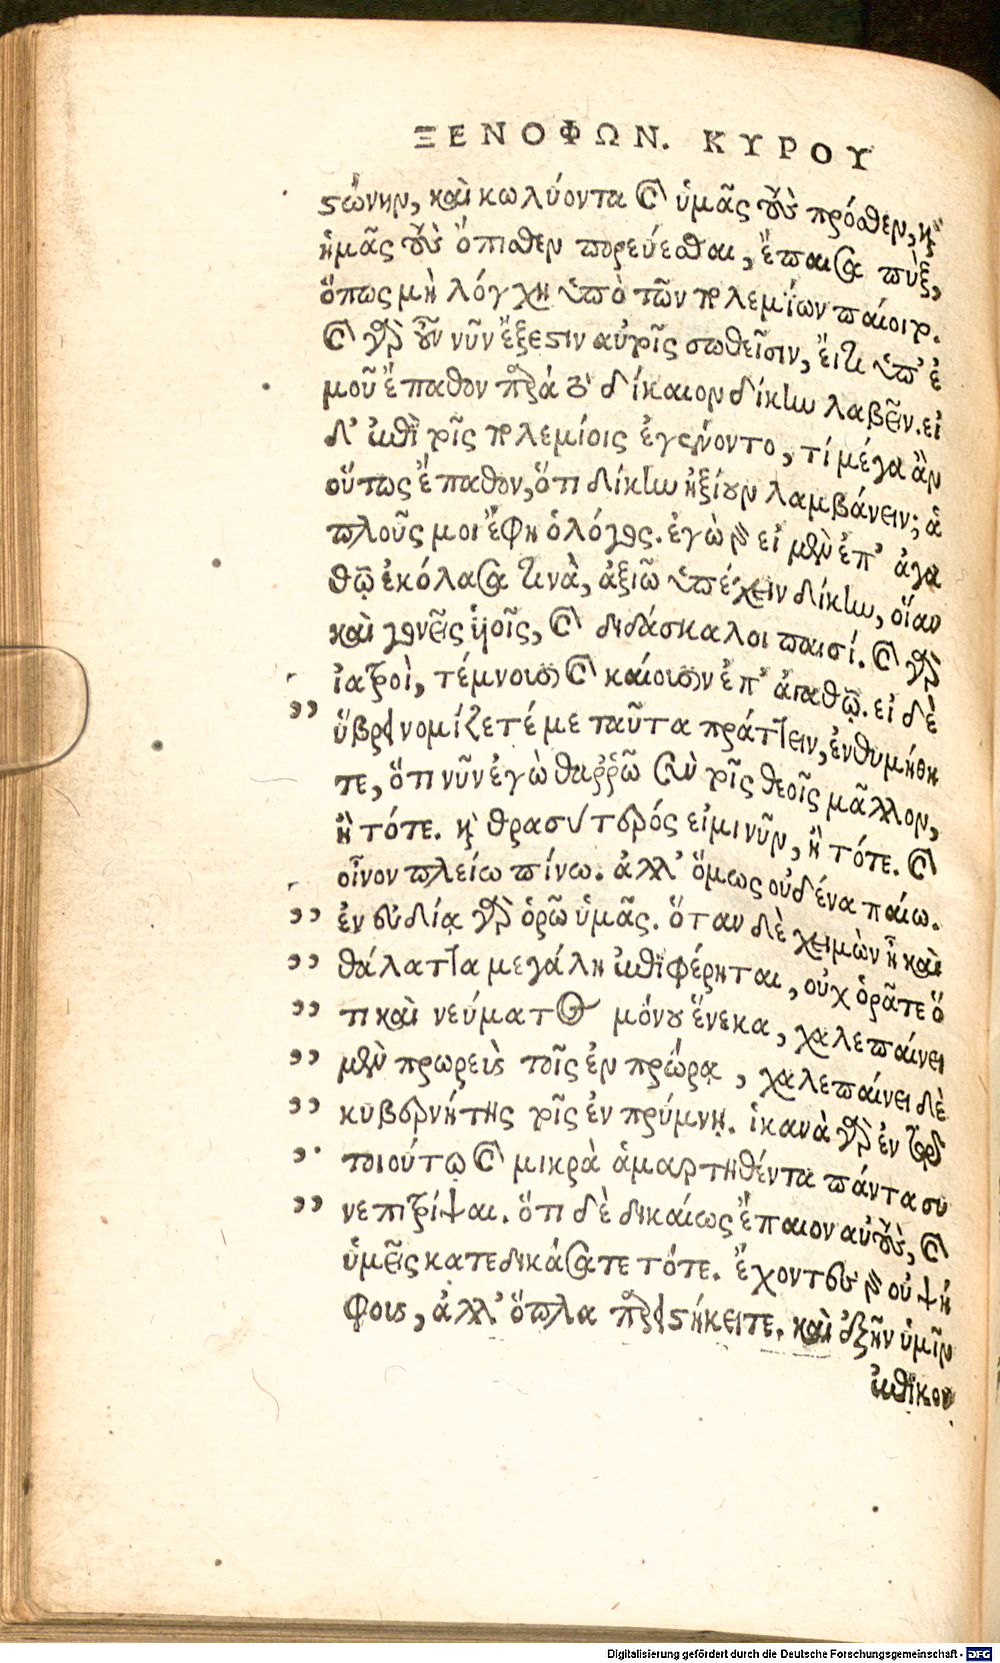 ΞΕΝΟΦΩΝ. ΚΥΡΟΥ
ϛώνην, καὶ κωλύοντα καὶ ὑμᾶς τοὺς πρόσθεν, καὶ
ἡμᾶς τοὺς ὄπισθεν πορεύεσθαι, ἔπαισα πὺξ,
ὅπως μὴ λόγχῃ ὑπὸ τῶν πολεμίων παίοιτο.
καὶ γὰρ οὖν νῦν ἔξεϛιν αὐτοῖς σωθεῖσιν, εἴ τι ὑπ' ἐ
μοῦ ἔπαθον παρὰ τὸ δίκαιον δίκην λαβεῖν. εἰ
δ' ἐπὶ τοῖς πολεμίοις ἐγένοντο, τί μέγα ἂν
οὕτως ἔπαθον, ὅτι δίκην ἠξίουν λαμβάνειν; ἁ
πλοῦς μοι ἔφη ὁ λόγος. ἐγὼ γὰρ εἰ μὲν ἐπ' ἀγα
θῷ ἐκόλασα τινὰ, ἀξιῶ ὑπέχειν δίκην, οἵαν
καὶ γονεῖς ὑιοῖς, καὶ διδάσκαλοι παισί. καὶ γὰρ
ἰατροὶ, τέμνουσι καὶ καίουσιν ἐπ' ἀγαθῷ. εἰ δὲ
ὕβρει νομίζετέ με ταῦτα πράττειν, ἐνθυμήθη
τε, ὅτι νῦν ἐγὼ θαῤῥῶ σὺν τοῖς θεοῖς μᾶλλον,
ἢ τότε. καὶ θρασύτερός εἰμι νῦν, ἢ τότε. καὶ
οἶνον πλείω πίνω. ἀλλ' ὅμως οὐδένα παίω.
ἐν εὐδίᾳ γὰρ ὁρῶ ὑμᾶς. ὅταν δὲ χειμὼν ᾖ καὶ
θάλαττα μεγάλη ἐπιφέρηται, οὐχ ὁρᾶτε ὅ
τι καὶ νεύματος μόνου ἕνεκα, χαλεπαίνει
μὲν πρωρεὺς τοῖς ἐν πρώρᾳ, χαλεπαίνει δὲ
κυβερνήτης τοῖς ἐν πρύμνῃ. ἱκανὰ γὰρ ἐν τῷ
τοιούτῳ καὶ μικρὰ ἁμαρτηθέντα πάντα συ
νεπιτρίψαι. ὅτι δὲ δικαίως ἔπαιον αὐτοὺς, καὶ
ὑμεῖς κατεδικάσατε τότε. ἔχοντες γὰρ οὐ ψή
φους, ἀλλ' ὅπλα παρεϛήκειτε. καὶ ἐξῆν ὑμῖν
ἐπικου
Digitalisierung gefördert durch die Deutsche Forschungsgemeinschaft - DFG